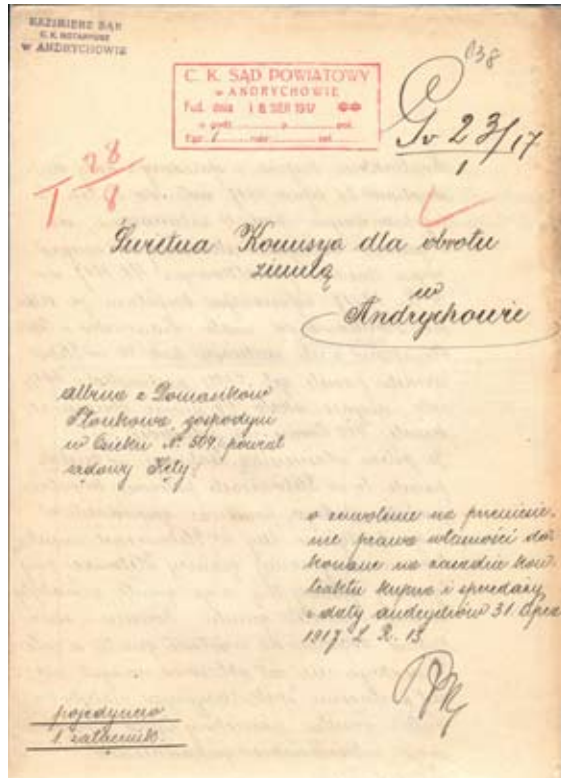 KAZIMIERZ BĄK
C. K. NOTARYUSZ
W ANDRYCHOWIE
038
C. K. SĄD POWIATOWY
w ANDRYCHOWIE
Pod. dnia 18 SER 1917
o godz. p. pol.
Egz. 1 zał.
G 23/17
1
T 28/8
Świetna Komisya dla obrotu
ziemią
w
Andrychowie
z Domasików
gospodyni
w № 504. powiat
sądowy Kęty
o zezwolenie na przeniesie-
nie prawa własności do-
konane na zasadzie kon-
traktu kupna i sprzedaży
z daty Andrychów 31. lipca
1917. L. R. 13
pojedynczo
1. załącznik